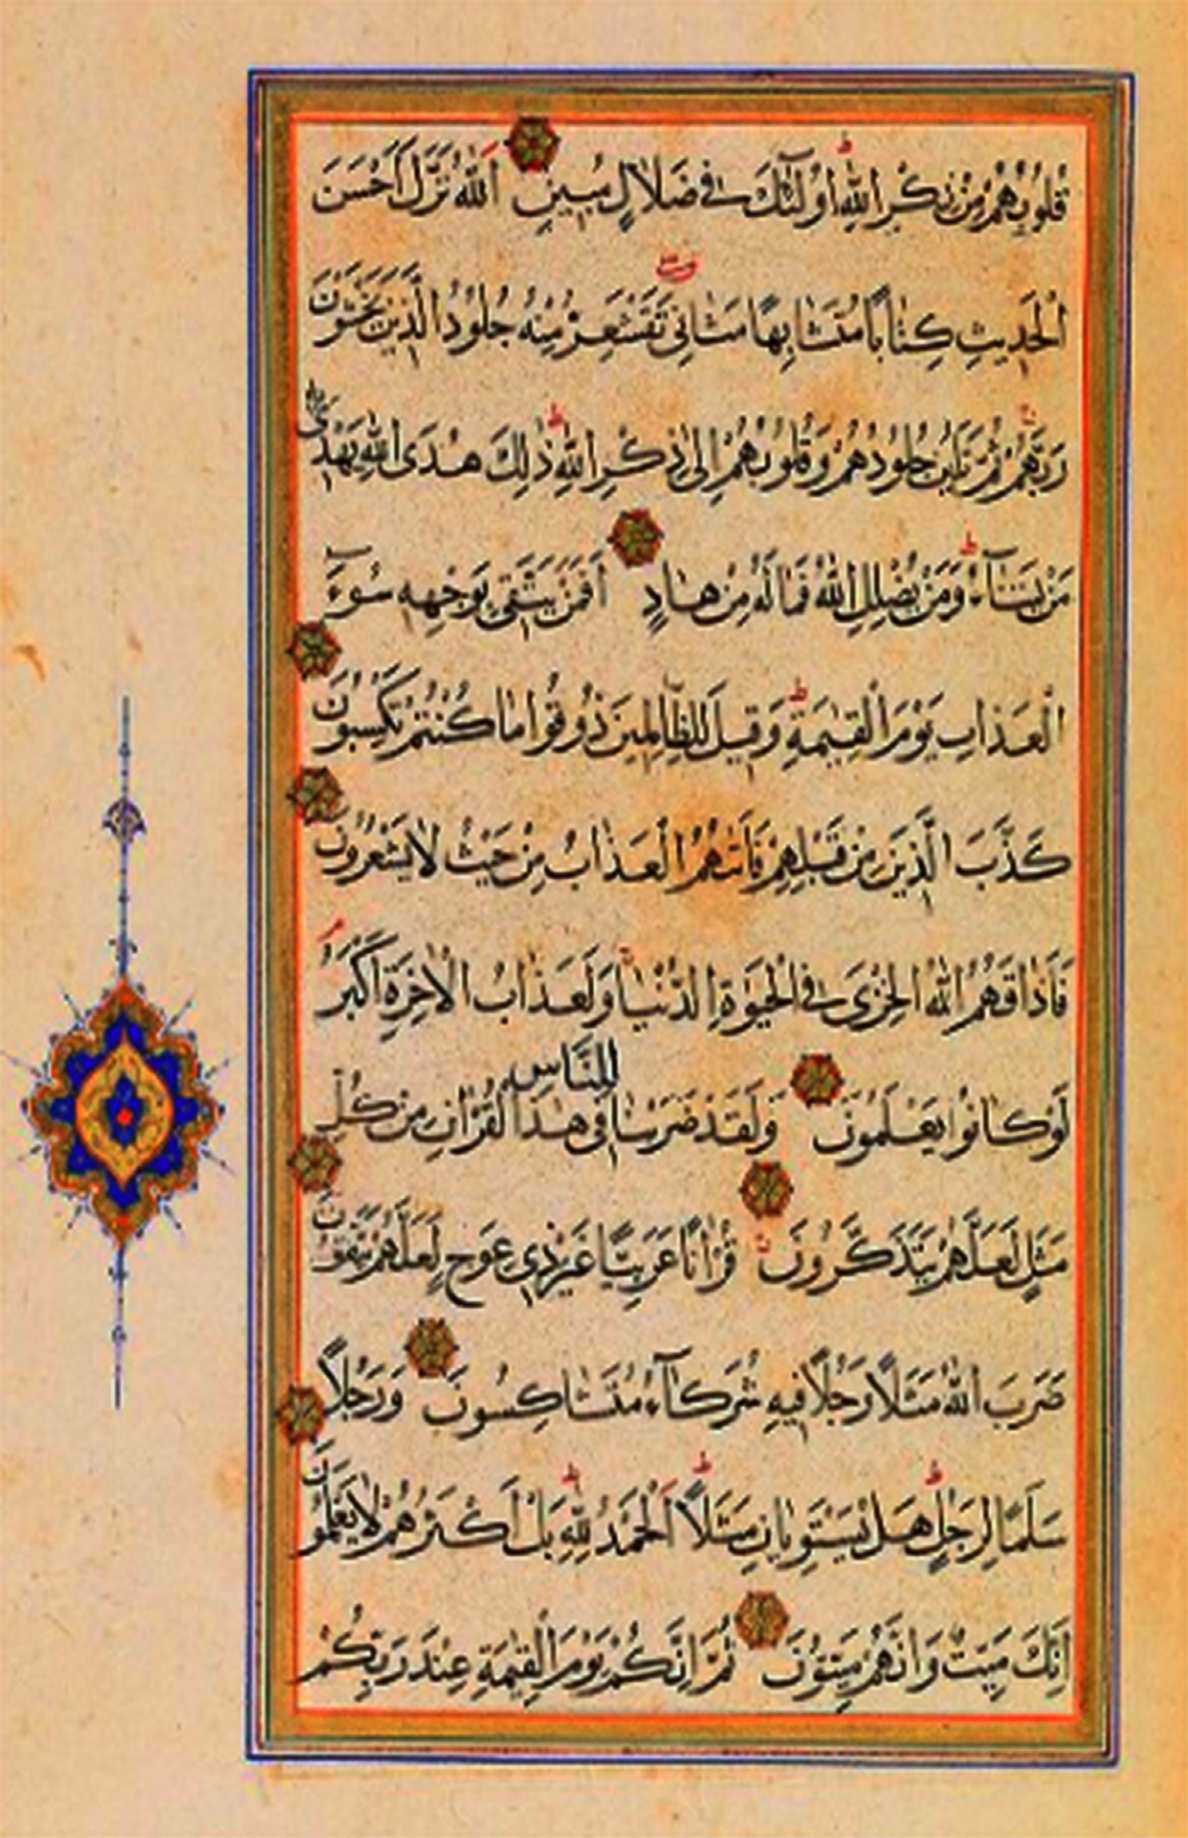 قُلُوبُهُمْ مِنْ ذِكْرِ اللهِ أُولَٰئِكَ فِي ضَلَالٍ مُبِينٍ اَللهُ نَزَّلَ اَحْسَنَ
الْحَدِيثِ كِتَابًا مُتَشَابِهًا مَثَانِيَ تَقْشَعِرُّ مِنْهُ جُلُودُ الَّذِينَ يَخْشَوْنَ
رَبَّهُمْ ثُمَّ تَلِينُ جُلُودُهُمْ وَقُلُوبُهُمْ اِلٰى ذِكْرِ اللهِ ط ذٰلِكَ هُدَى اللهِ يَهْدِي بِهِ
مَنْ يَشَآءُ ط وَمَنْ يُضْلِلِ اللهُ فَمَا لَهُ مِنْ هَادٍ اَفَمَنْ يَتَّقِي بِوَجْهِهِ سُوءَ
الْعَذَابِ يَوْمَ الْقِيٰمَةِ ط وَقِيلَ لِلظَّالِمِينَ ذُوقُوا مَا كُنْتُمْ تَكْسِبُونَ
كَذَّبَ الَّذِينَ مِنْ قَبْلِهِمْ فَاَتٰهُمُ الْعَذَابُ مِنْ حَيْثُ لَا يَشْعُرُونَ
فَاَذَاقَهُمُ اللهُ الْخِزْيَ فِي الْحَيٰوةِ الدُّنْيَا وَلَعَذَابُ الْاٰخِرَةِ اَكْبَرُ
لَوْ كَانُوا يَعْلَمُونَ وَلَقَدْ ضَرَبْنَا لِلنَّاسِ فِي هٰذَا الْقُرْاٰنِ مِنْ كُلِّ
مَثَلٍ لَعَلَّهُمْ يَتَذَكَّرُونَ قُرْاٰنًا عَرَبِيًّا غَيْرَ ذِي عِوَجٍ لَعَلَّهُمْ يَتَّقُونَ
ضَرَبَ اللهُ مَثَلًا رَجُلًا فِيهِ شُرَكَآءُ مُتَشَاكِسُونَ وَرَجُلًا
سَلَمًا لِرَجُلٍ ط هَلْ يَسْتَوِيَانِ مَثَلًا ط اَلْحَمْدُ لِلّٰهِ ط بَلْ اَكْثَرُهُمْ لَا يَعْلَمُونَ
اِنَّكَ مَيِّتٌ وَاِنَّهُمْ مَيِّتُونَ ثُمَّ اِنَّكُمْ يَوْمَ الْقِيٰمَةِ عِنْدَ رَبِّكُمْ